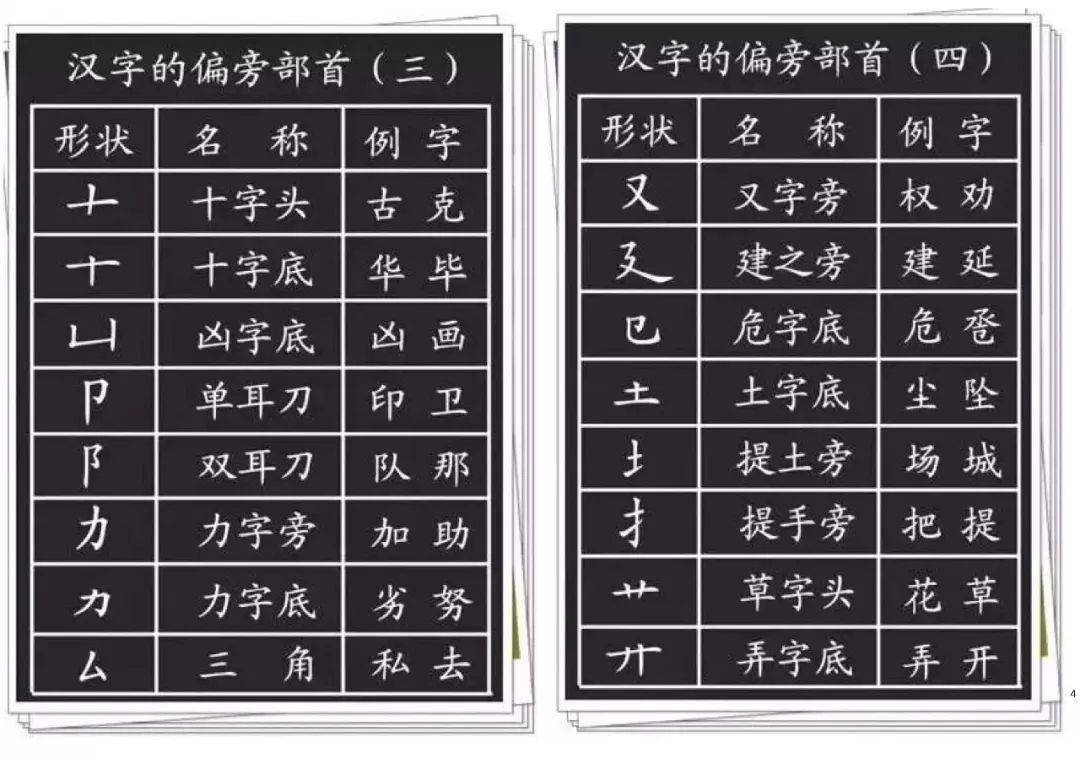 汉字的偏旁部首（三）
形状 名称 例字
十 十字头 古克
十 十字底 华毕
凵 凶字底 凶画
卩 单耳刀 印卫
阝 双耳刀 队那
力 力字旁 加助
力 力字底 劣努
厶 三角 私去
汉字的偏旁部首（四）
形状 名称 例字
又 又字旁 权劝
廴 建之旁 建延
㔾 危字底 危卺
土 土字底 尘坠
土 提土旁 场城
扌 提手旁 把提
艹 草字头 花草
廾 弄字底 弄开
4